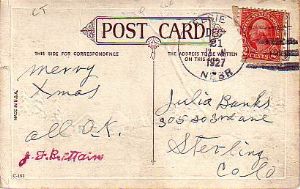 POST CARD
THIS SIDE FOR CORRESPONDENCE
THE ADDRESS TO BE WRITTEN
ON THIS SIDE
DEC
21
1927
NEBR
merry
Xmas
all O.K.
J. F. Brittain
Julia Banks
305 So 3rd ave
Sterling
Colo
MADE IN U.S.A.
C-152